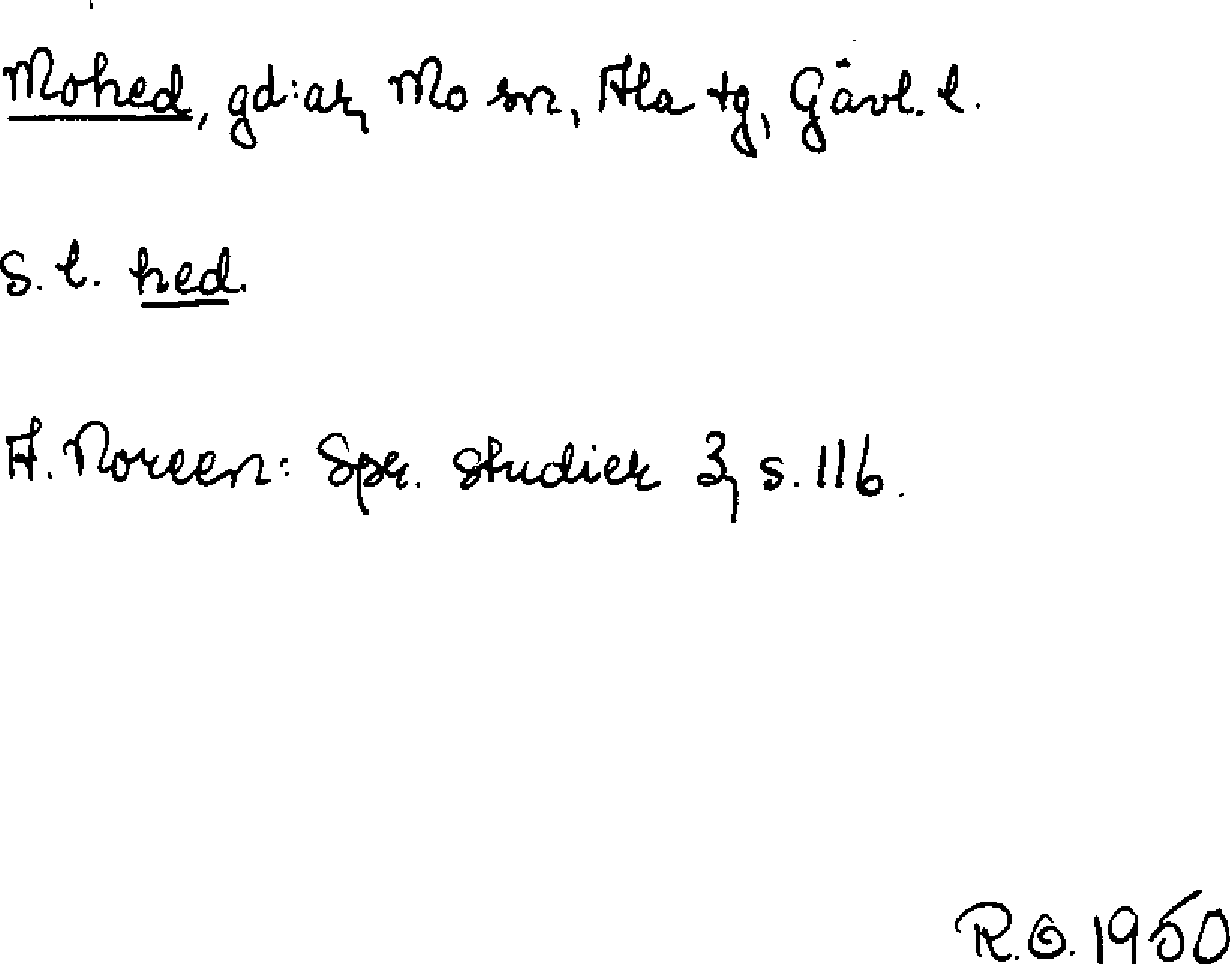 Mohed, gd:ar, Mo sn, Ala tg, Gävl. l.
s. l. hed.
A. Noreen: Spr. studier 3, s. 116.
R.O. 1950